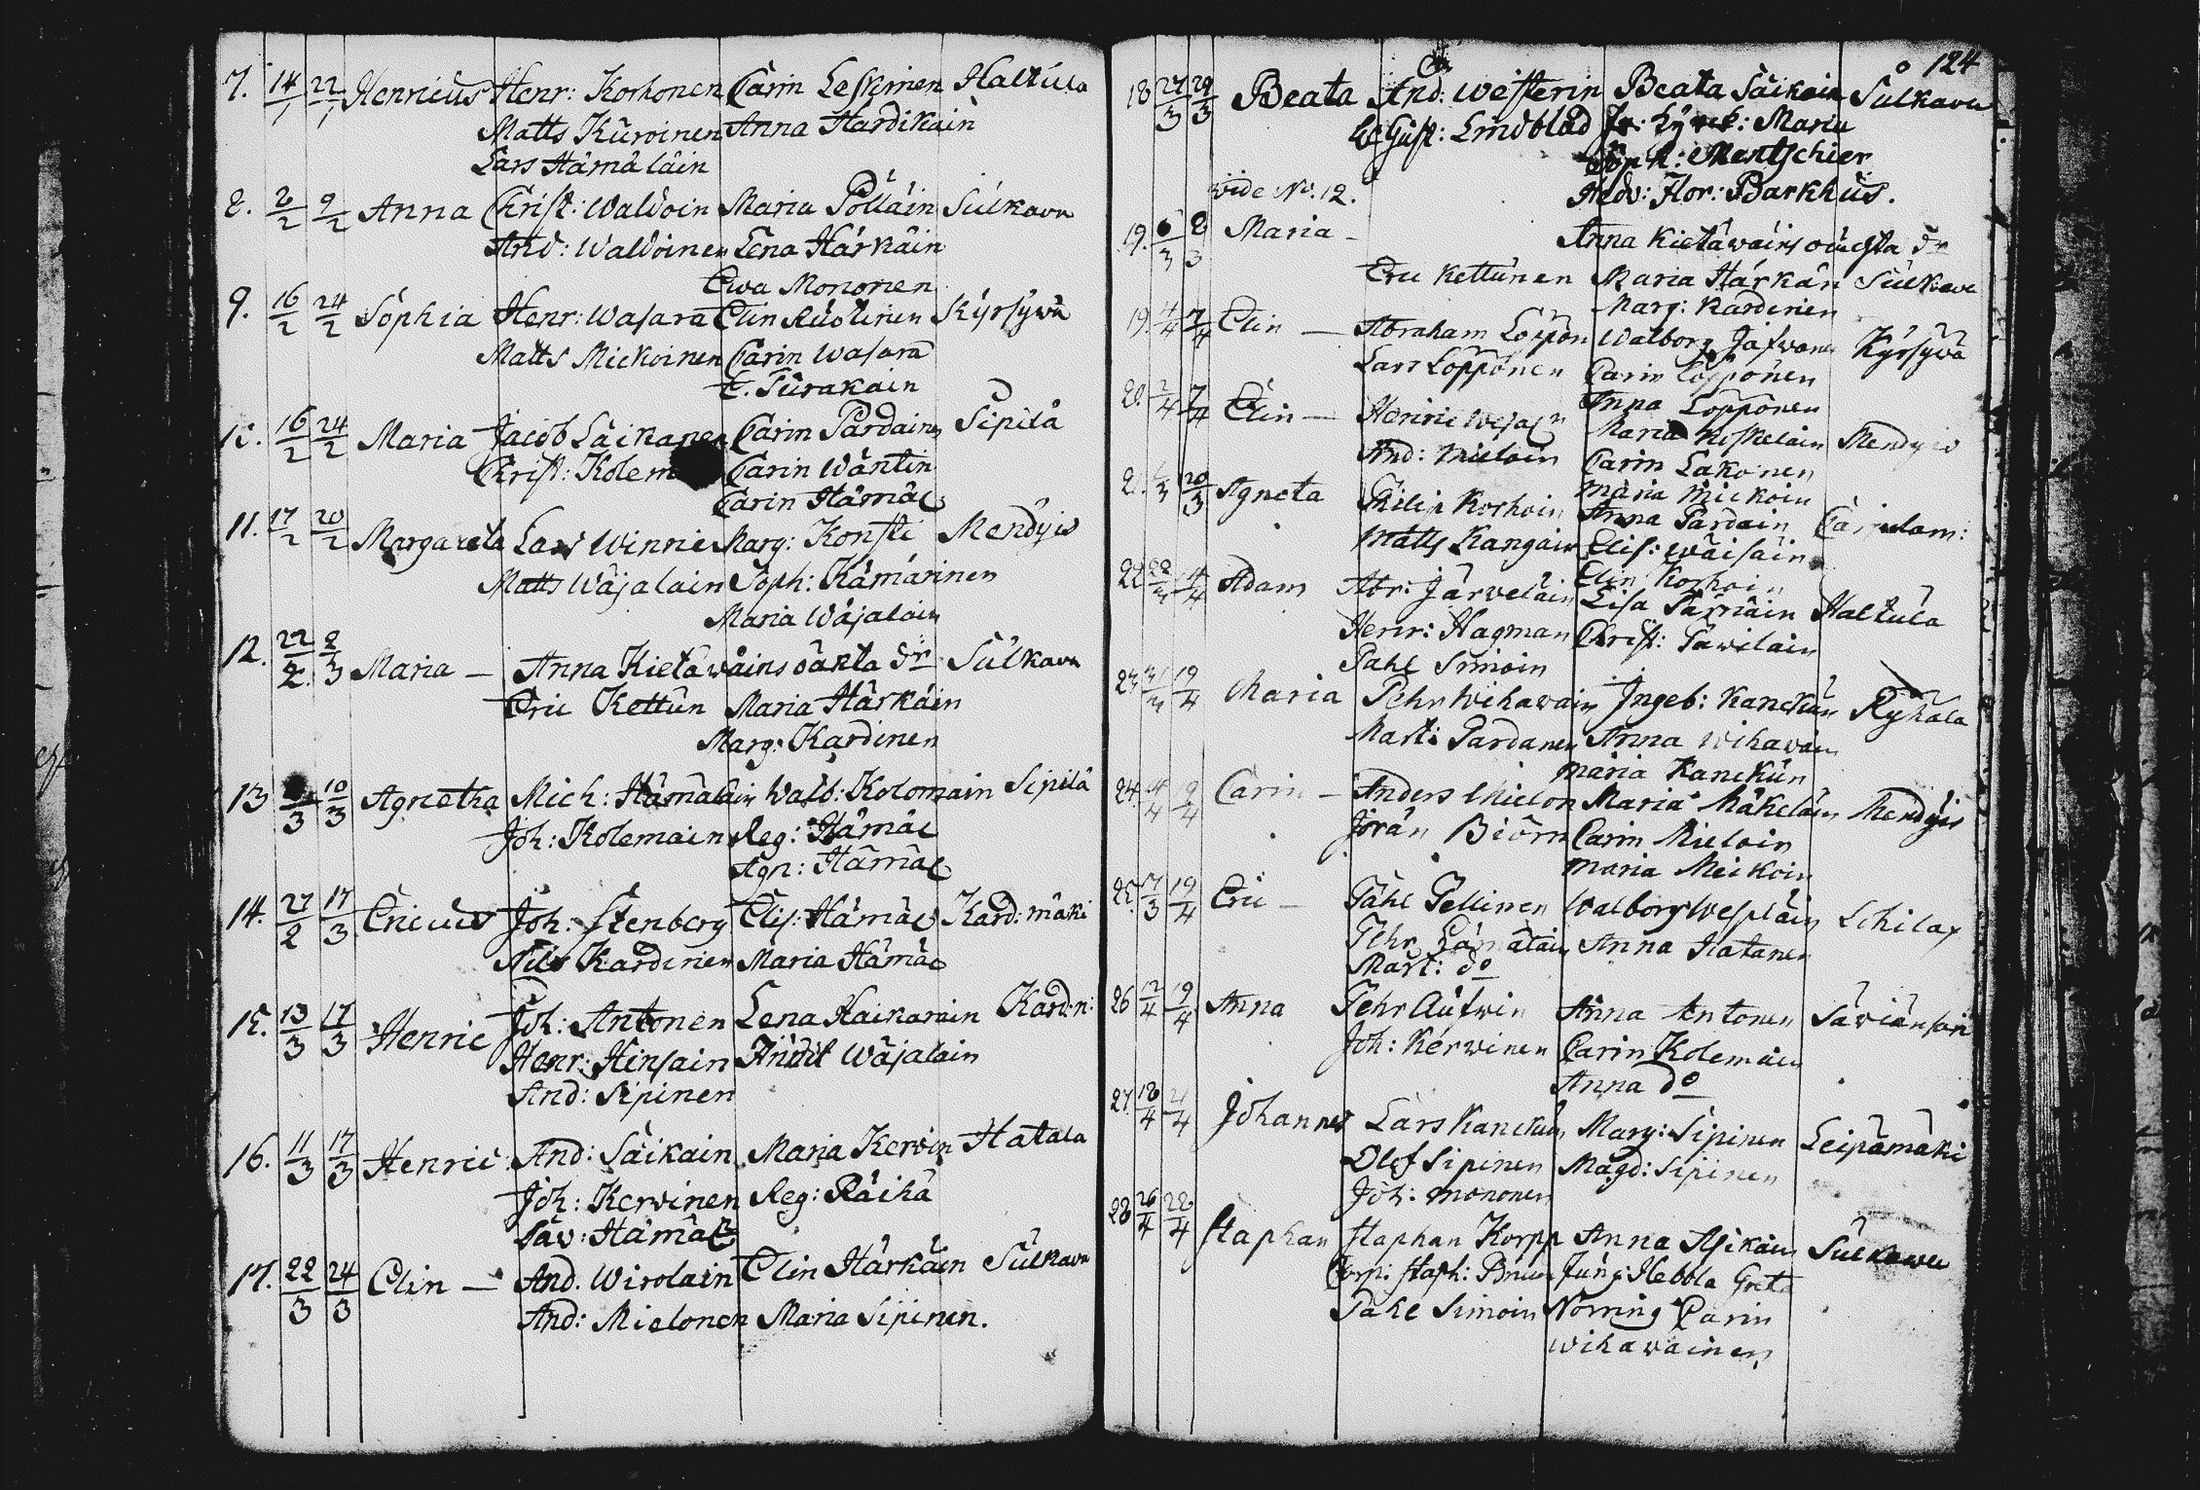 7. 14/1 22/1 Henricus Henr: Korhonen Carin Leskinen Haltula
Matts Kürvinen Anna Hardikain
Lars Hämäläin
8. 2/2 9/2 Anna Christ: Waldoin Maria Pölläin Sulkava
And: Waldoinen Lena Härkäin
Ewa Mononen
9. 16/2 24/2 Sophia Henr: Wasara Elin Ruotinen Kyrsywä
Matts Mickoinen Carin Wasara
E. Turakain
10. 16/2 24/2 Maria Jacob Säikänen Carin Pardain Sipilä
Christ: Kolem Carin Wäntin
Carin Hämäl
11. 17/2 20/2 Margareta Lars Winnie Marg: Konsti Mendyis
Matts Wäjalain Soph: Kämärinen
Maria Wäjalain
12. 22/2 2/3 Maria — Anna Kietäwäins oäkta dr Sulkava
Eric Kettun Maria Härkäin
Marg: Kardinen
13 /3 10/3 Agnetha Mich: Hämäläin Walb: Kolomain Sipilä
Joh: Kolemain Reg: Hämäl
Agn: Hämäl
14. 27/2 17/3 Ericus Joh: Stenberg Elis: Hämäl Kard: mäki
Nils Kardinen Maria Hämäl
15. 13/3 17/3 Henric Joh: Antonen Lena Haikarain Kard:n:
Henr: Hinsain Wäjalain
And: Sipinen
16. 11/3 17/3 Henric And: Säikäin Maria Kervin Hatala
Joh: Kervinen Reg: Räikä
Säv: Hämäl
17. 22/3 24/3 Elin — And. Wirolain Elin Härkäin Sulkava
And: Mielonen Maria Sipinen.
124
18 27/3 29/3 Beata And: Westerin Beata Säikäin Sulkava
Gust: Lindblad Maria
Mentschier
Hedv: Flor: Barkhus.
vide No. 12.
19. 6/3 8/3 Maria — Anna Kietäwäins oäckta dr
Eric Kettunen Maria Härkän Sulkava
Marg: Kardinen
19. 4/4 7/4 Elin — Abraham Loppön Walborg Kyrsywä
Lars Loppönen Carin Loppönen
Anna Loppönen
20. 2/4 7/4 Elin — Henric Maria Koskelain Mendyis
And: Mieloin Carin Lakonen
Maria Mickoin
21. /3 20/3 Agneta Philip Korhoin Anna Pardain
Matts Kangain Elis: Wäisäin
Elin Korhoin
22 22/3 14/4 Adam Abr: Järveläin Lisa Pärnäin Haltula
Henr: Hagman Christ: Tawilain
Pahl Simoin
23. 31/3 19/4 Maria Pehr Wihawain Ingeb: Kanckün Rykälä
Mart: Pardanen Anna Wihawain
Maria Kanckün
24. 14/4 19/4 Carin — Anders Mielon Maria Mäkeläin Mendyis
Jöran Biörn Carin Mieloin
Maria Meikoin
25. 17/3 19/4 Eric — Påhl Pellinen Walborg Wespläin Lohilax
Pehr Anna Hatanen
Mart: do
26 12/4 19/4 Anna Pehr Auvin Anna Antonen Säviänsari
Joh: Kervinen Carin Kolemain
Anna do
27. 18/4 21/4 Johannes Lars Kanckün Marg: Sipinen Leipämäki
Olof Sipinen Magd: Sipinen
Joh: Mononen
28 26/4 28/4 Staphan Staphan Korpp Anna Asikain Sulkawa
Staph: Brun Jung: Hebbla Greta
Pahl Simoin Norring Carin
Wihawainen